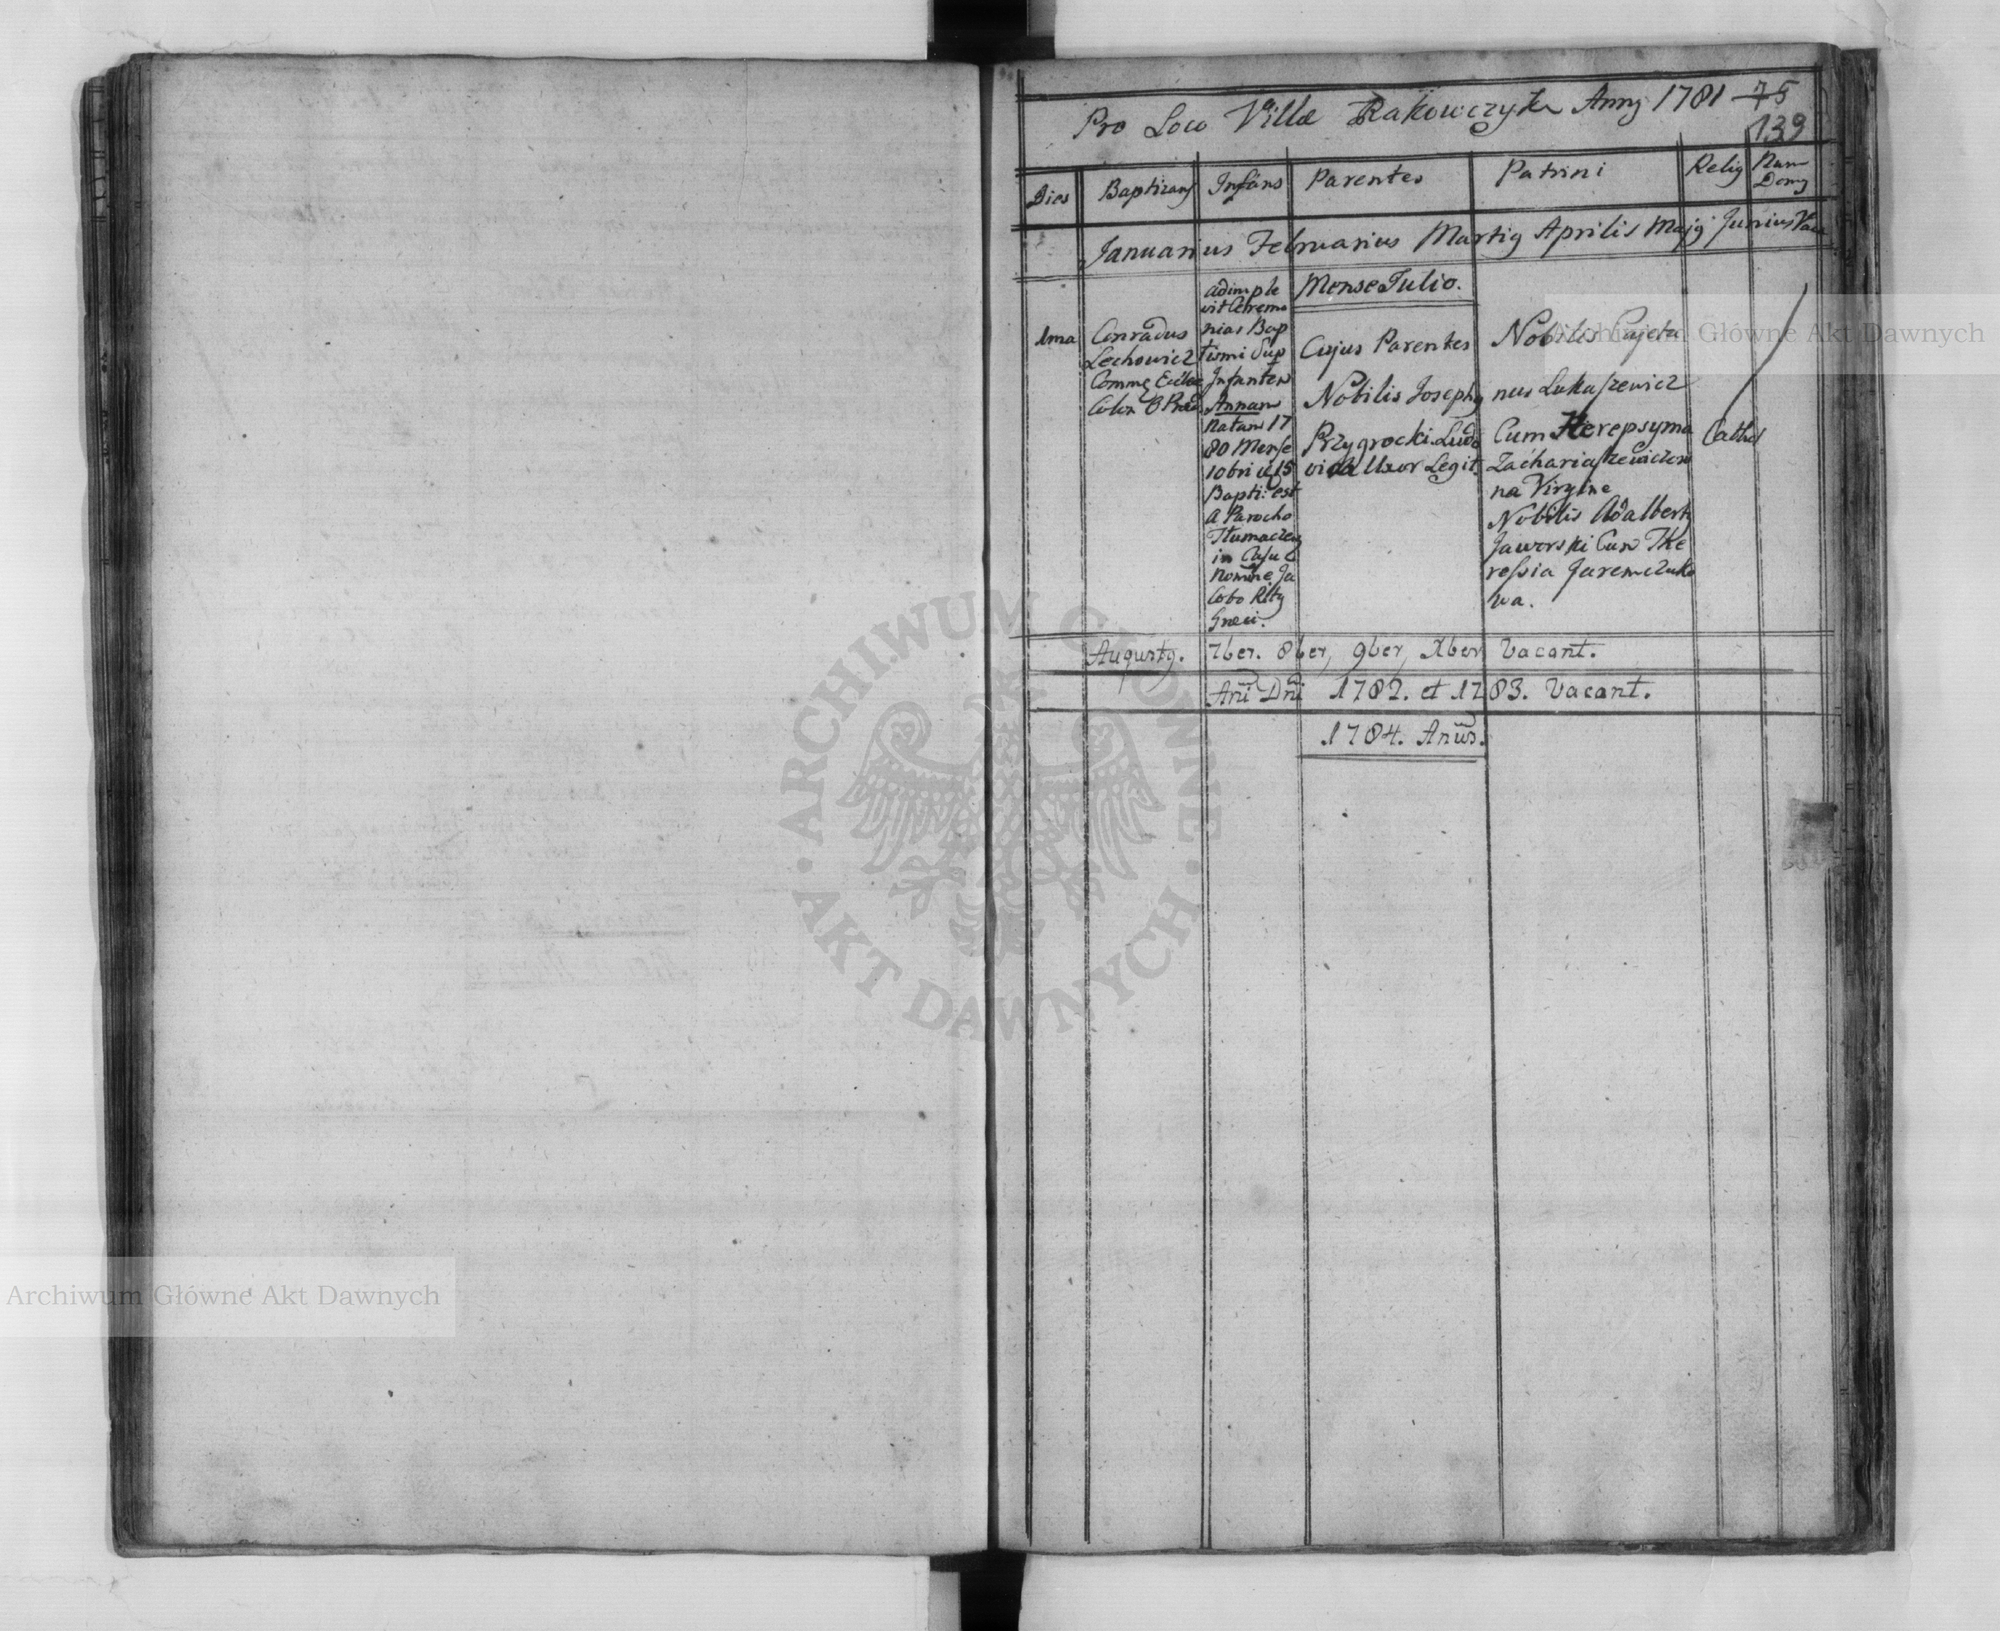 Pro Loco Villæ Rakowczyk Anny 1781
75
139
Dies Baptizans Infans Parentes Patrini Relig Num Domg
Januarius Februarius Martig Aprilis Majg Junius Vac
Mense Julio.
1ma
Conradus
Lechowicz
Commg Eccles
Colon
adimple
vit Ceremo
nias Bap
tismi Sup
Infantem
Annam
Natam 17
80 Mense
10bri
Bapti: est
a Parocho
in Casu
Nomine Ja
cobo Ritg
Græci.
Cujus Parentes
Nobilis Josephg
Przygrocki. Ludo
vica Uxor Legit.
Nobilis Cajeta
nus Lukaszewicz
Cum Herepsyma
Zachariaszewiczow
na Virgine
Nobilis Adalbertg
Jaworski Cum The
ressia Jaremczuko
wa.
Cathol
Augustg. 7ber. 8ber, 9ber, Xber Vacant.
Añi Dñi 1782. et 1783. Vacant.
1784. Anũs.
ARCHIWUM GŁÓWNE · AKT DAWNYCH ·
Archiwum Główne Akt Dawnych
Archiwum Główne Akt Dawnych